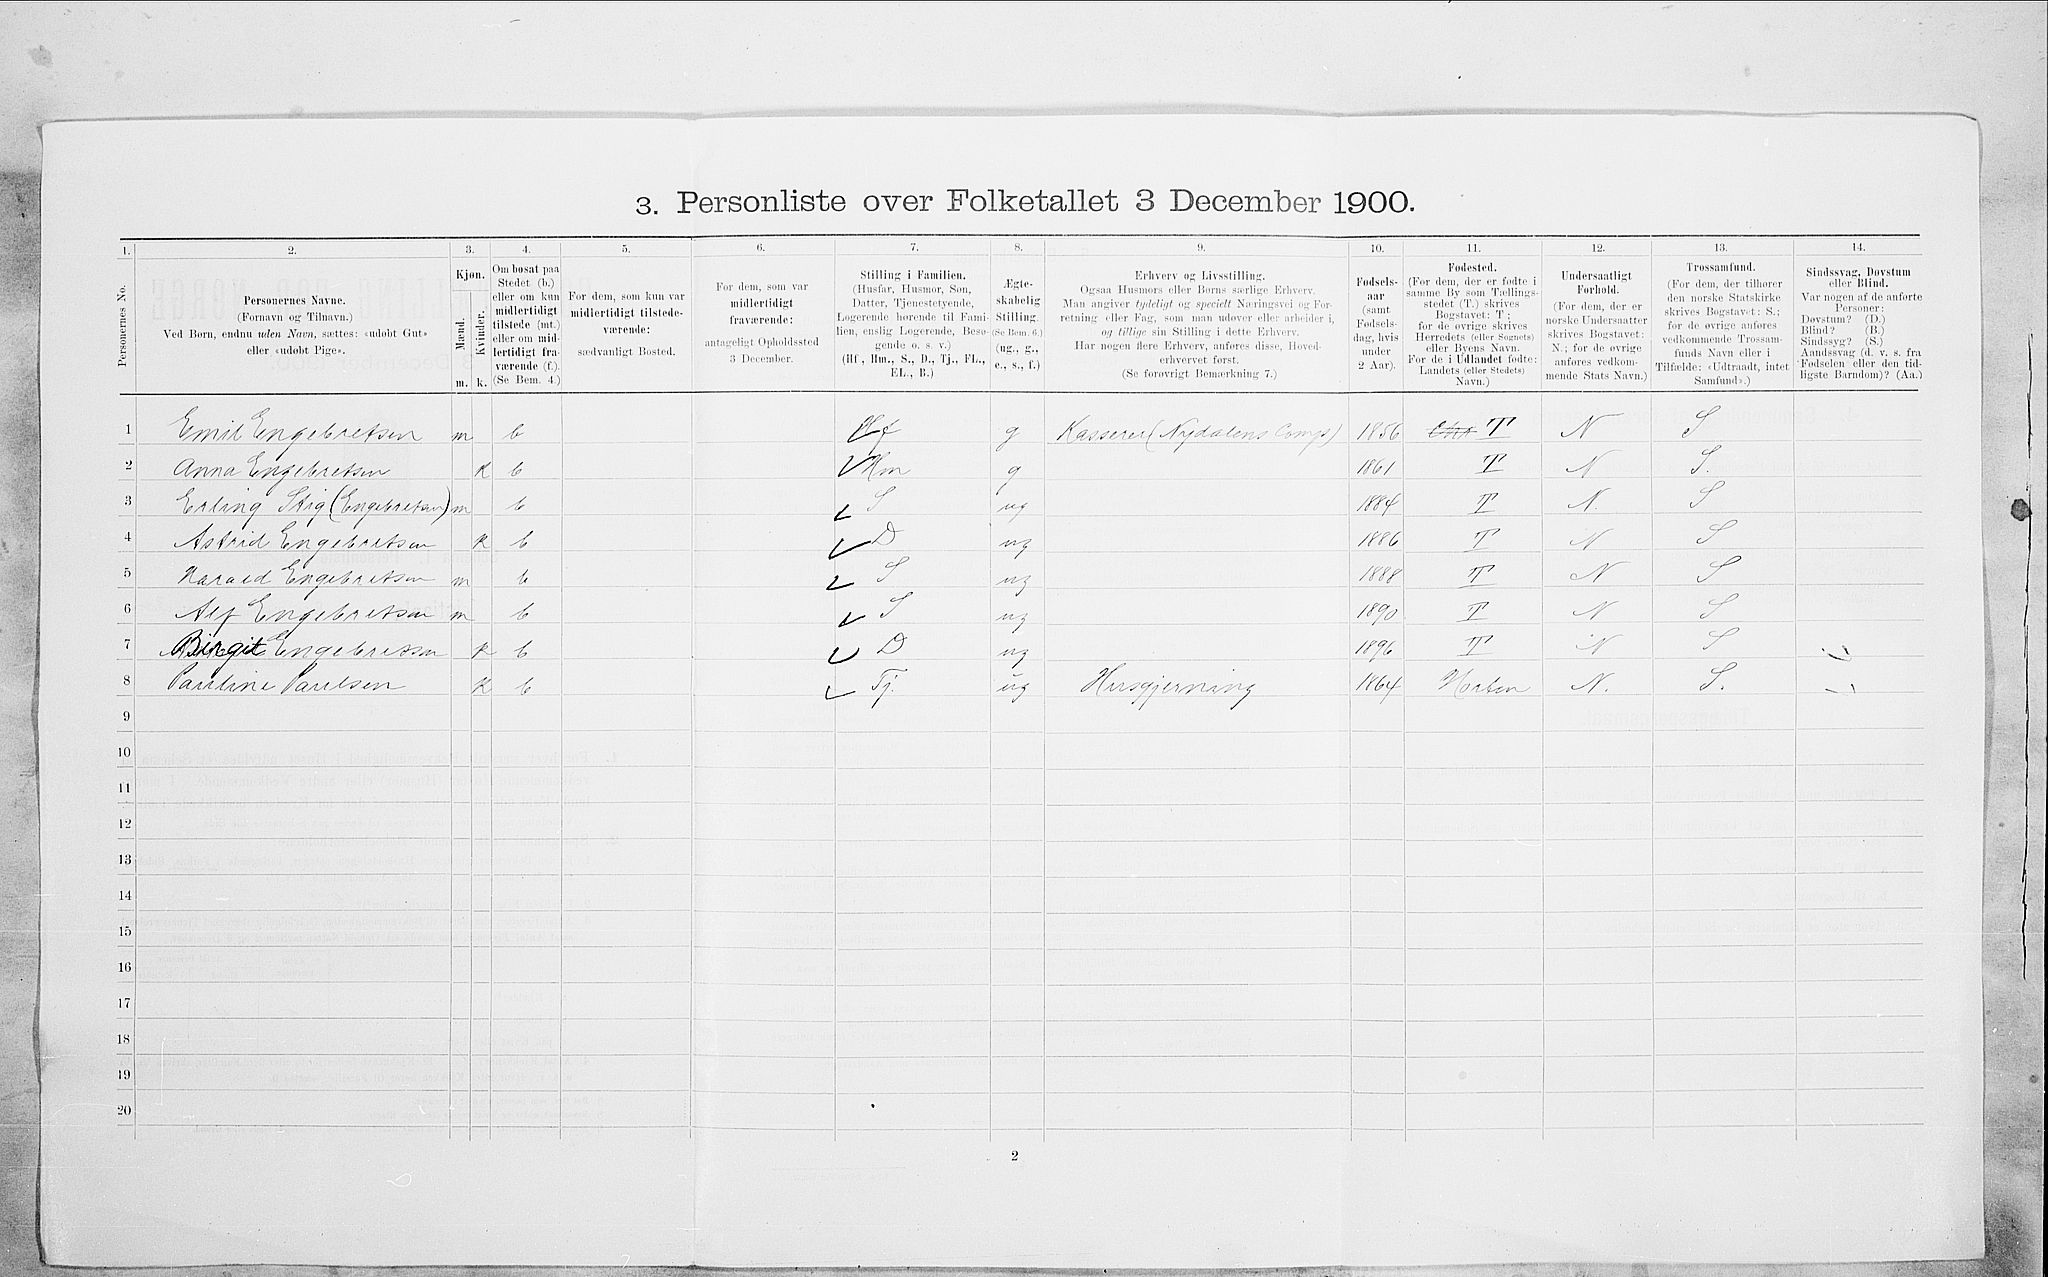 3. Personliste over Folketallet 3 December 1900.
1. 2. 3. 4. 5. 6. 7. 8. 9. 10. 11. 12. 13. 14.
Personernes No.
Personernes Navne.
(Fornavn og Tilnavn.)
Ved Børn, endnu uden Navn, sættes: «udøbt Gut»
eller «udøbt Pige».
Kjøn.
Mænd.
Kvinder.
m. k.
Om bosat paa
Stedet (b.)
eller om kun
midlertidigt
tilstede (mt.)
eller om mid-
lertidigt fra-
værende (f.)
(Se Bem. 4.)
For dem, som kun var
midlertidigt tilstede-
værende:
sædvanligt Bosted.
For dem, som var
midlertidigt
fraværende:
antageligt Opholdssted
3 December.
Stilling i Familien.
(Husfar, Husmor, Søn,
Datter, Tjenestetyende,
Logerende hørende til Fami-
lien, enslig Logerende, Besø-
gende o. s. v.)
(Hf., Hm., S., D., Tj., FL.,
EL., B.)
Ægte-
skabelig
Stilling.
(Se Bem. 6.)
(ug., g.,
e., s., f.)
Erhverv og Livsstilling.
Ogsaa Husmors eller Børns særlige Erhverv.
Man angiver tydeligt og specielt Næringsvei og For-
retning eller Fag, som man udøver eller arbeider i,
og tillige sin Stilling i dette Erhverv.
Har nogen flere Erhverv, anføres disse, Hoved-
erhvervet først.
(Se forøvrigt Bemærkning 7.)
Fødsels-
aar
(samt
Fødsels-
dag, hvis
under
2 Aar).
Fødested.
(For dem, der er fødte i
samme By som Tællings-
stedet (T.) skrives
Bogstavet: T;
for de øvrige skrives
Herredets (eller Sognets)
eller Byens Navn.
For de i Udlandet fødte:
Landets (eller Stedets)
Navn.)
Undersaatligt
Forhold.
(For dem, der er
norske Undersaatter
skrives Bogstavet:
N.; for de øvrige
anføres vedkom-
mende Stats Navn.)
Trossamfund.
(For dem, der tilhører
den norske Statskirke
skrives Bogstavet: S.;
for de øvrige anføres
vedkommende Trossam-
funds Navn eller i
Tilfælde: «Udtraadt, intet
Samfund».)
Sindssvag, Døvstum
eller Blind.
Var nogen af de anførte
Personer:
Døvstum? (D.)
Blind? (B.)
Sindssyg? (S.)
Aandssvag (d. v. s. fra
Fødselen eller den tid-
ligste Barndom)? (Aa.)
1 Emil Engebretsen m b Hf g Kasserer (Nydalens Comp) 1856 Chra T N S
2 Anna Engebretsen k b Hm g 1861 T N S.
3 Erling Stig (Engebretsen) m b S ug 1884 T N. S
4 Astrid Engebretsen k b D ug 1886 T N S
5 Harald Engebretsen m b S ug 1888 T N S
6 Alf Engebretsen m b S ug 1890 T N S
7 Birgit Engebretsen k b D ug 1896 T N S
8 Pauline Paulsen k b Tj. ug Husgjerning 1864 Horten N. S.
9
10
11
12
13
14
15
16
17
18
19
20
2